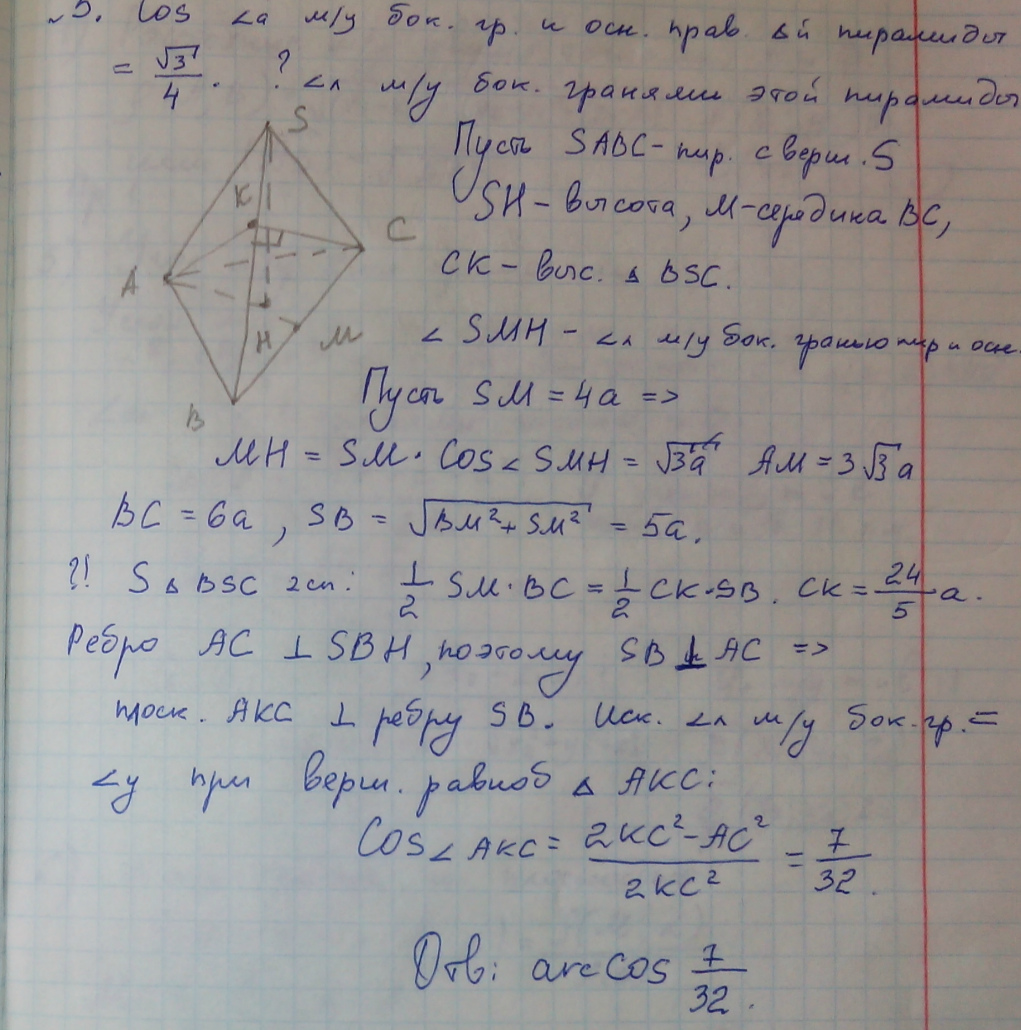 5. Cos ∠а м/у бок. гр. и осн. прав. Δй пирамиды
= √3/4. ? ∠л м/у бок. гранями этой пирамиды
S
K
C
A
H
M
B
Пусть SABC - пир. с верш. S
SH - высота, M - середина BC,
CK - выс. Δ BSC.
∠ SMH - ∠л м/у бок. гранью пир и осн.
Пусть SM = 4a =>
MH = SM · Cos ∠ SMH = √3a AM = 3√3a
BC = 6a, SB = √BM² + SM² = 5a.
?! S Δ BSC 2сп: 1/2 SM · BC = 1/2 CK · SB. CK = 24/5 a.
Ребро AC ⊥ SBH, поэтому SB ⊥ AC =>
плоск. AKC ⊥ ребру SB. Иск. ∠л м/у бок. гр. =
∠у при верш. равноб Δ AKC:
Cos ∠ AKC = 2KC² - AC² / 2KC² = 7/32.
Отв: arccos 7/32.